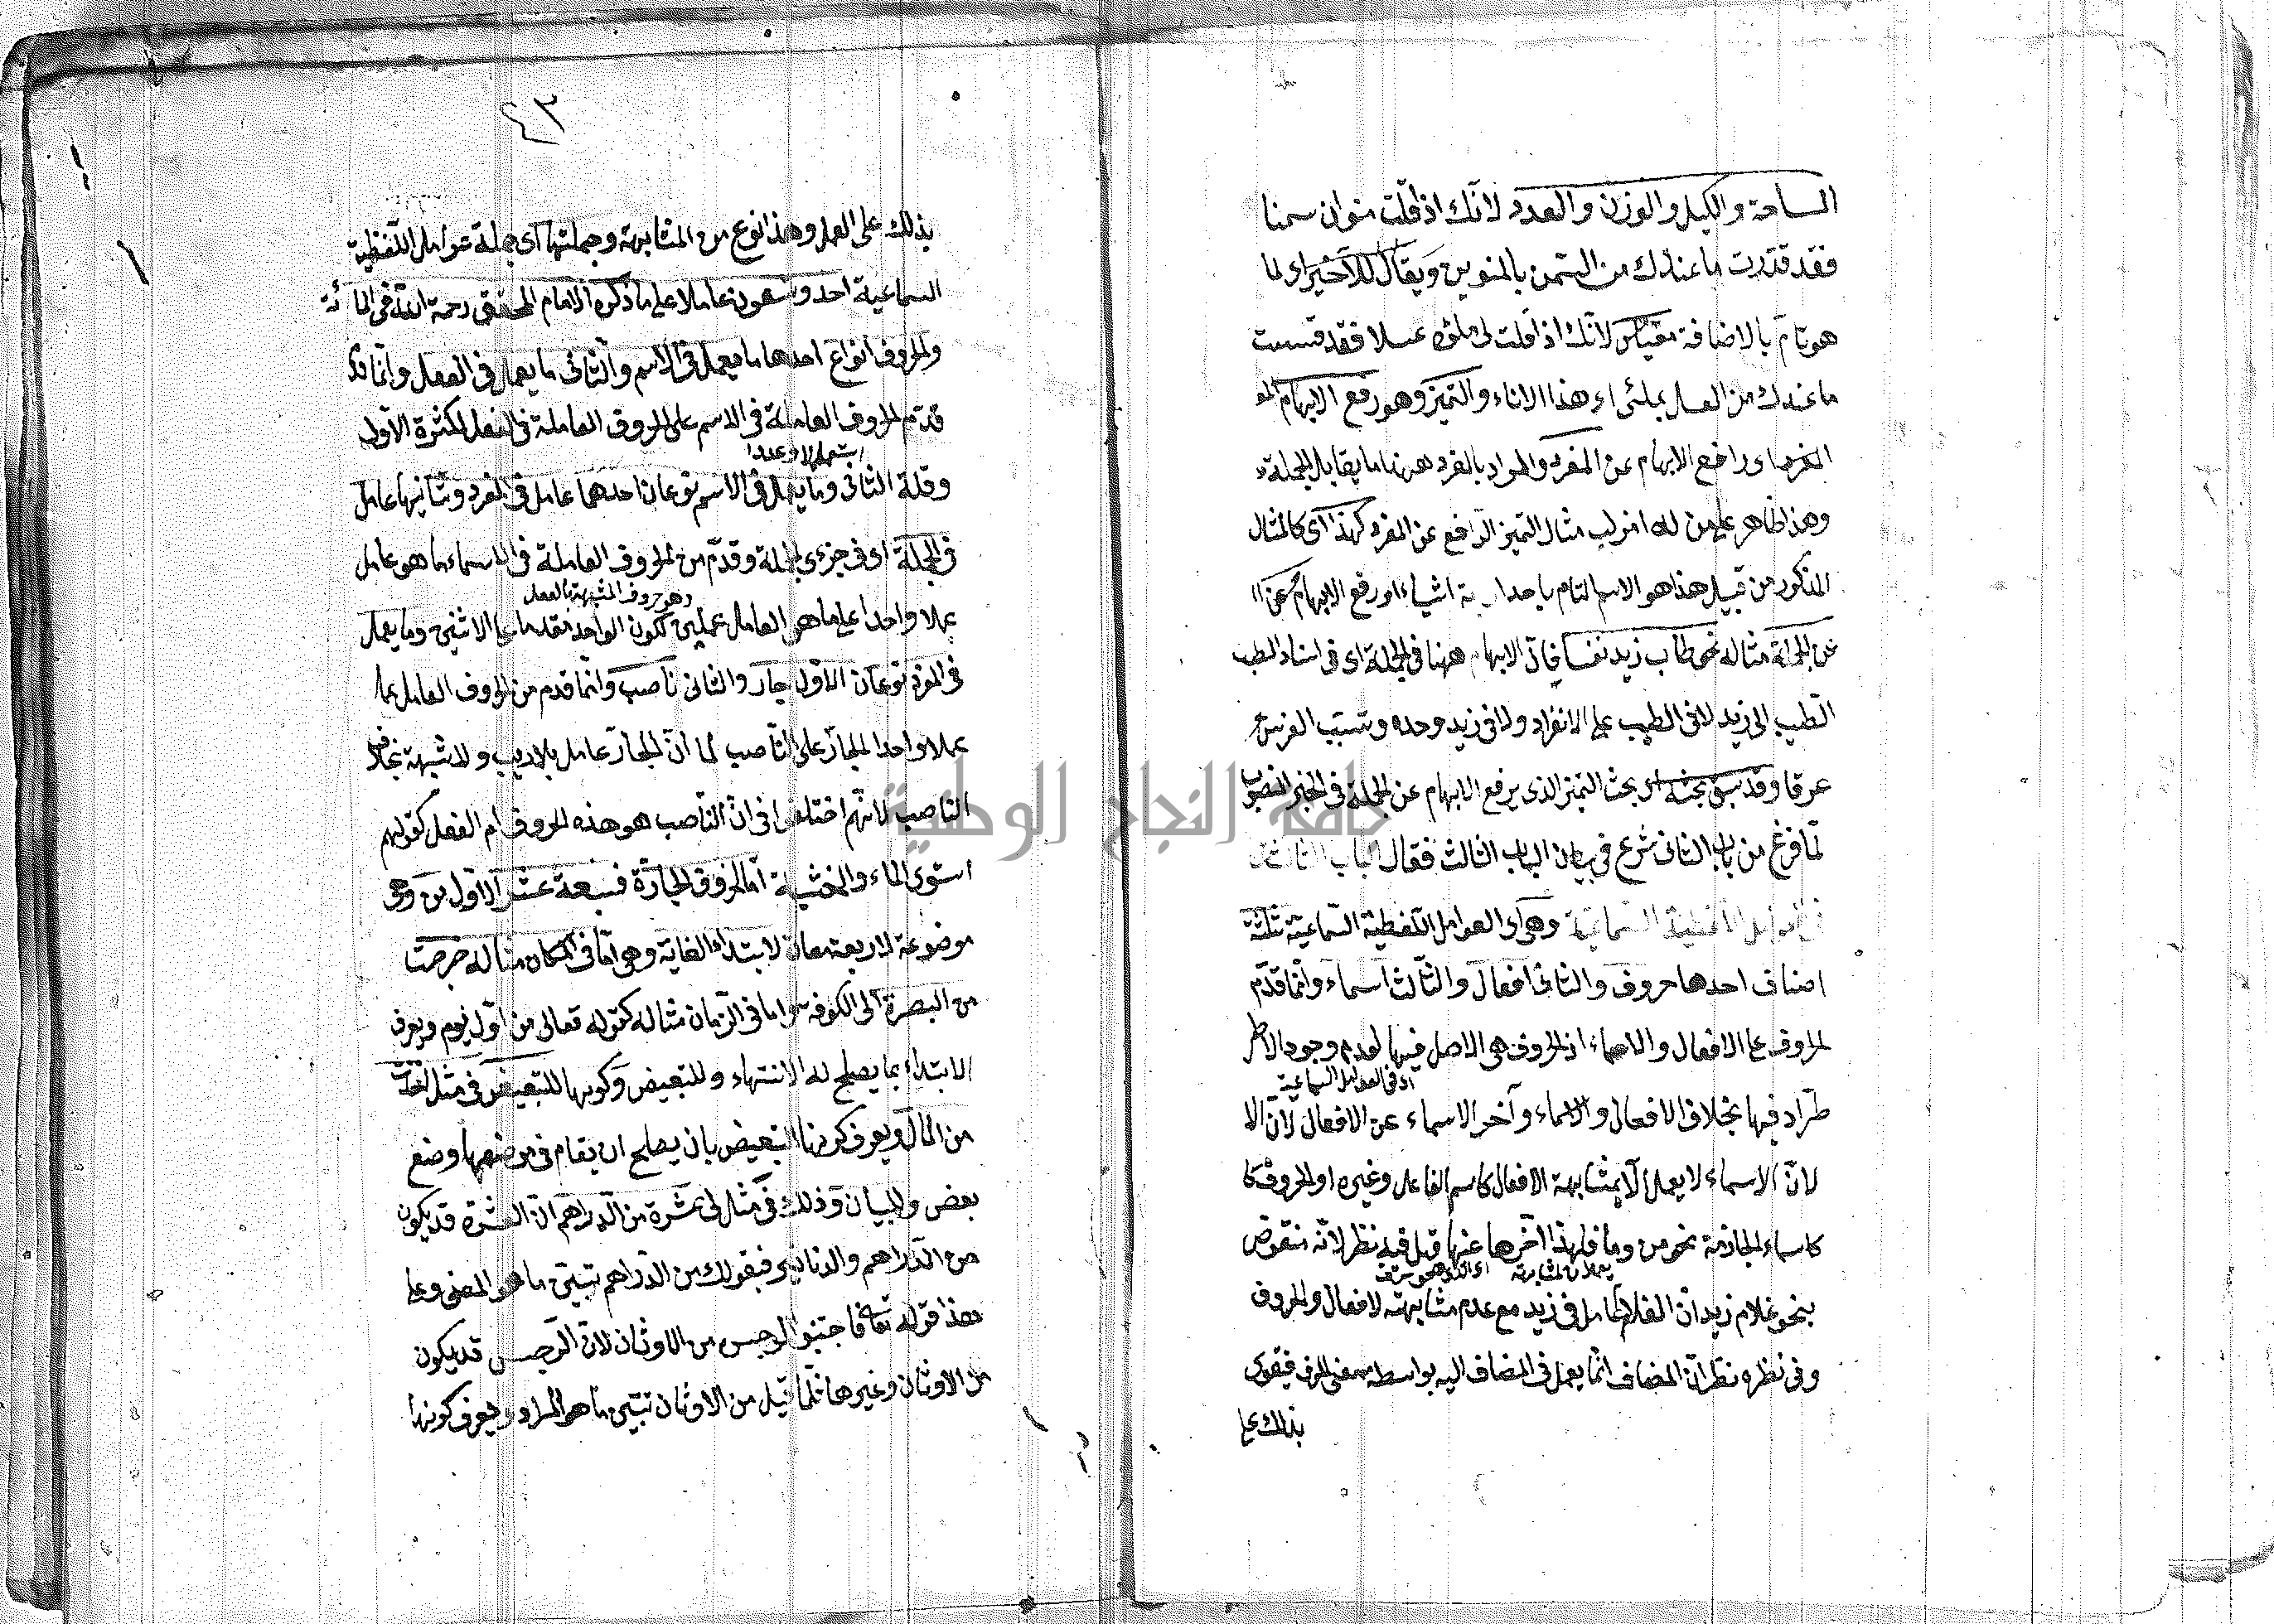 المساحة والكيل والوزن والعدد لانّك اذ قلت منوان سمنا
فقد قدّرت ما عندك من السّمن بالمنوين ويقال للاخير اى لما
هو تامّ بالاضافة مقياس لانّك اذ اقلت لى ملؤه عسلا فقد قسست
ما عندك من العسل بملئ اى هذا الاناء والتميز وهو رفع الابهام المو
المفرد اى رافع الابهام عن المفرد والمراد بالمفرد ههنا ما يقابل الجملة
وهذا ظاهر على من له ادنى لب مثال التميز الرافع عن المفرد كهذا اى كالمثال
المذكور من قبيل هذا هو الاسم التام باحد اشياء او رفع الابهام عن ال
عن الجملة مثاله نحو طاب زيد نفسا فانّ الابهام ههنا فى الجملة اى فى اسناد لطيب
الطيب الى زيد لا فى الطيب على الانفراد ولا فى زيد وحده وتسبب الفرس
عرقا وقد سبق بحثه اى بحث التميز الذى يرفع الابهام عن الجملة فى الخبر المنصوب
لمّا فرغ من باب الثانى شرع فى بيان الباب الثالث فقال الباب الثالث
فى العوامل اللفظية السماعية وهى اى العوامل اللّفظية السّماعيّة ثلثة
اصناف احدها حروف والثانى افعال والثّالث اسماء وانّما قدّم
الحروف على الافعال والاسماء اذ الحروف هى الاصل فيها لعدم وجود الاط
اى فى العوامل السماعية
طراد فيها بخلاف الافعال والاسماء وآخر الاسماء عن الافعال لانّ الا
لانّ الاسماء لا يعمل الّا بمشابهة الافعال كاسم الفاعل وغيره او الحروف كا
كاسماء الجازمة نحو من وما فلهذا اخّرها عنها قيل فيه نظر لانّه منقوض
بنحو غلام زيد انّ الغلام عامل فى زيد مع عدم مشابهته لافعال والحروف
وفى نظره نظر انّ المضاف انّما يعمل فى المضاف اليه بواسطة معنى الحرف فيقوى
بذلك على
٤٣
بذلك على العمل وهذا نوع من المشابهة وجملتها اى جملة عوامل اللّفظية
السماعية احد وتسعون عاملا على ما ذكره الامام المحقق رحمة الله فى المائة
والحروف انواع احدها ما يعمل فى الاسم والثّانى ما يعمل فى الفعل وانّما قد
قدّم الحروف العاملة فى الاسم على الحروف العاملة فى الفعل لكثرة الاوّل
استعمالا وعددا
وقلة الثانى وما يعمل فى الاسم نوعان احدهما عامل فى المفرد وثانيها عامل
فى الجملة اى فى جزءى الجملة وقدّم من الحروف العاملة فى الاسماء ما هو عامل
وهو حروف المشبهة بالفعل
عملا واحدا على ما هو العامل عملين لكون الواحد مقدما على الاثنين وما يعمل
فى المفرد نوعان الاوّل جار والثانى ناصب وانّما قدم من الحروف العامل بما
عملا واحدا الجارّ على النّاصب لما انّ الجارّ عامل بلا ريب ولا شبهة بخلاف
الناصب لانّهم اختلفوا فى انّ النّاصب هو هذه الحروف ام الفعل كقولهم
استوى الماء والخشبة امّا الحروف الجارّة فسبعة عشر الاوّل من وهى
موضوعة لاربعة معان لابتداء الغاية وهى امّا فى المكان مثاله خرجت
من البصرة الى الكوفة واما فى الزمان مثاله كقوله تعالى من اوّل يوم ويعرف
الابتداء بما يصلح له الانتهاء وللتبعيض وكونها للتبعيض فى مثل اخذت
من المال ويعرف كونها التبعيض بان يصلح ان يقام فى موضعها وضع
بعض والبيان وذلك فى مثل لى عشرة من الدّراهم انّ العشرة قد يكون
من الدّراهم والدنانير فبقولك من الدّراهم تبيّن ما هو المعنى وعلى
هذا قوله تعالى فاجتنبوا الرجس من الاوثان لانّ الرّجس قد يكون
من الاوثان وغيرها فلمّا قيل من الاوثان تبيّن ما هو المراد ويعرف كونها
جامعة النجاح الوطنية